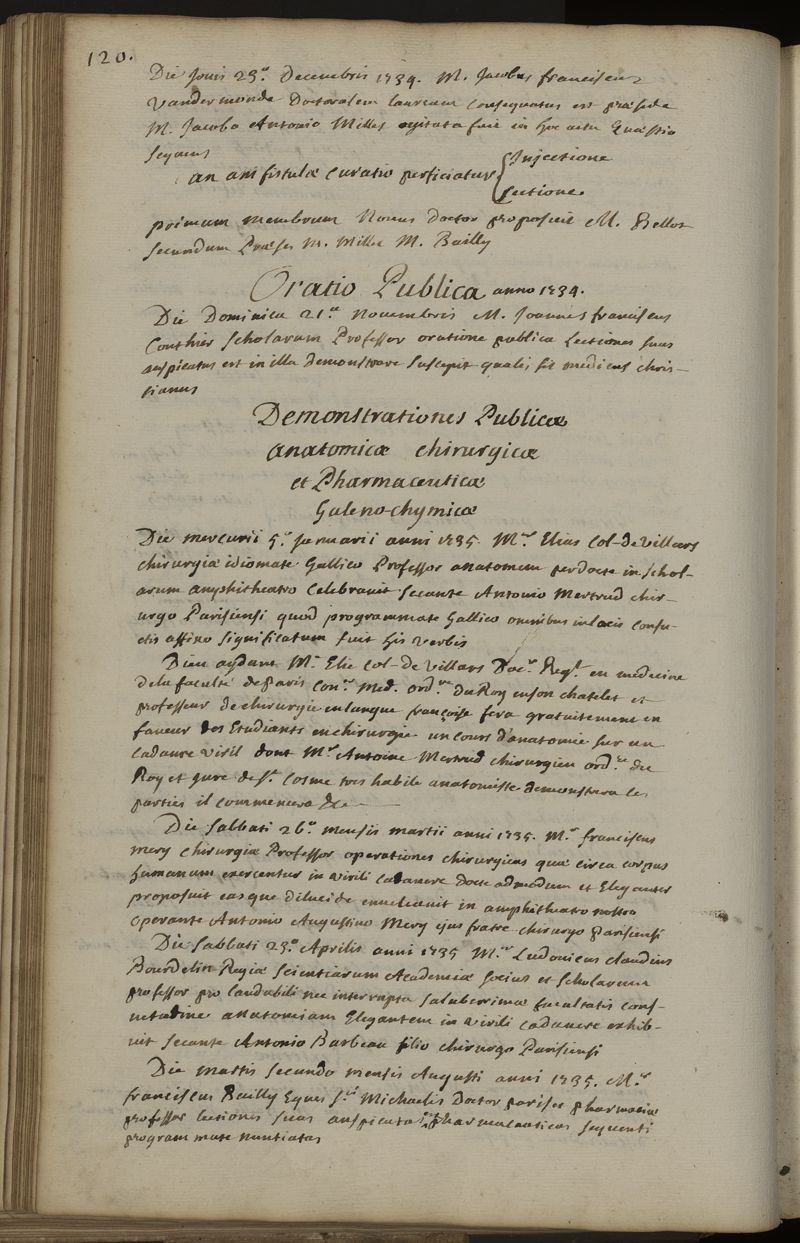 120.
Die Jovis 23.a decembris 1734. M. Jacobus franciscus
vandermonde Doctoralem lauream consequutus est præside
M. Jacobo Antonio Millet agitata fuit in hoc actu Quæstio
sequens
an ani fistulæ curatio perficiatur { Injectione
Sectione.
primum membrum Novus doctor proposuit M. Bellot
secundum Præses M. Millet M. Bailly
Oratio Publica anno 1734.
Die Dominica 21.a Novembris M. Joannes franciscus
Couthier Scholarum Professor oratione publica Lectiones suas
auspicatus est in illa demonstrare suscepit qualis sit medicus chris-
tianus
Demonstrationes Publicæ
anatomicæ chirurgicæ
et Pharmaceuticæ
Galeno-chymicæ
Die mercurii 5.a Januarii anni 1735. M.er Elias Col-de Villars
chirurgiæ idiomate Gallico Professor anatomem perdocte in schol-
arum amphitheatro celebravit secante Antonio Mertrud chir-
urgo Parisiensi quod programmate Gallico omnibus in locis consu-
etis affixo significatum fuit his verbis
Dieu aydant M.re Elie Col-de villars Doc.r Reg.t en medecine
de la faculté de Paris con.er Med. ord.re du Roy en son chatelet et
professeur de chirurgie en langue françoise fera gratuitement en
faveur des Etudiants en chirurgie un cours d'anatomie sur un
cadavre viril dont M.re Antoine Mertrud chirurgien ord.re du
Roy et juré de S.t Cosme tres habile anatomiste demonstrera les
parties il commencera &c
Die Sabbati 26.a mensis martii anni 1735. M.er franciscus
mery chirurgiæ Professor operationes chirurgicas quæ circa corpus
humanum exercentur in virili cadavere docte admodum et Eleganter
proposuit easque dilucide enucleavit in amphitheatro nostro
operante Antonio Augustino Mery ejus fratre chirurgo parisiensi
Die Sabbati 23.a Aprilis anni 1735 M.er Ludovicus claudius
Bourdelin Regiæ Scientiarum Academiæ socius et scholarum
professor pro laudabili nec interrupta saluberrimæ facultatis cons-
uetudine anatomiam Elegantem in virili cadavere exhib-
uit secante Antonio Barbeau filio chirurgo Parisiensi
Die martis secundo mensis Augusti anni 1735. M.er
franciscus Bailly Eques S.ti Michaelis Doctor paris et pharmaciæ
professor lectiones suas auspicatus pharmaceuticas sequenti
programmate nuntiatas